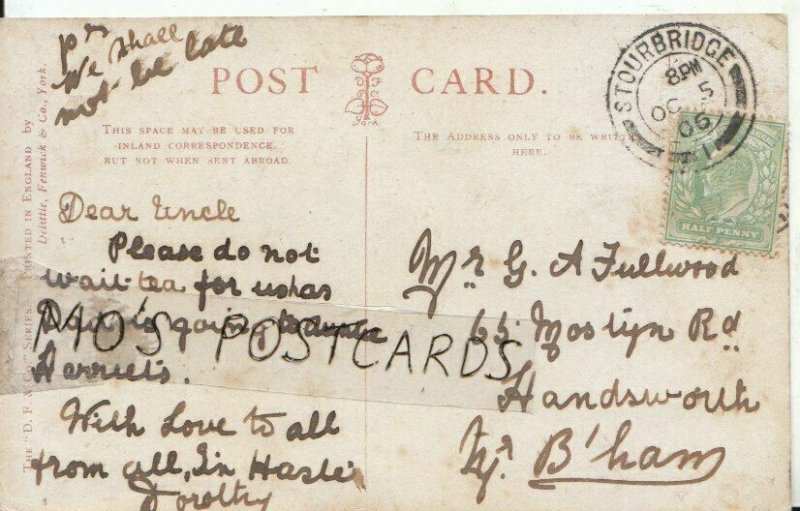 Ps
We shall
not be late
POST CARD.
THIS SPACE MAY BE USED FOR
INLAND CORRESPONDENCE.
BUT NOT WHEN SENT ABROAD.
THE ADDRESS ONLY TO BE WRITTEN
HERE.
STOURBRIDGE
8 PM
OC 5
06
HALF PENNY
THE "D. F. & Co." SERIES. PRINTED IN ENGLAND by
Delittle, Fenwick & Co., York.
Dear Uncle
Please do not
wait tea for us has
is going
Harriets.
With Love to all
from all, In Haste
Dorothy
MO'S POSTCARDS
Mr G. A Fullwood
65 Mostyn Rd
Handsworth
Nr B'ham